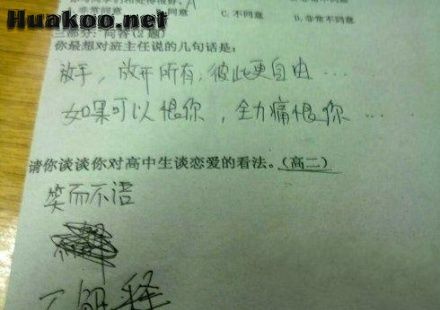 Huakoo.net
非常同意
C. 不同意
D. 非常不同意
三部分: 问答(2题)
你最想对班主任说的几句话是:
放手，放开所有，彼此更自由…
如果可以恨你，全力痛恨你…
请你谈谈你对高中生谈恋爱的看法。(高二)
笑而不语
不解释
Huakoo.net